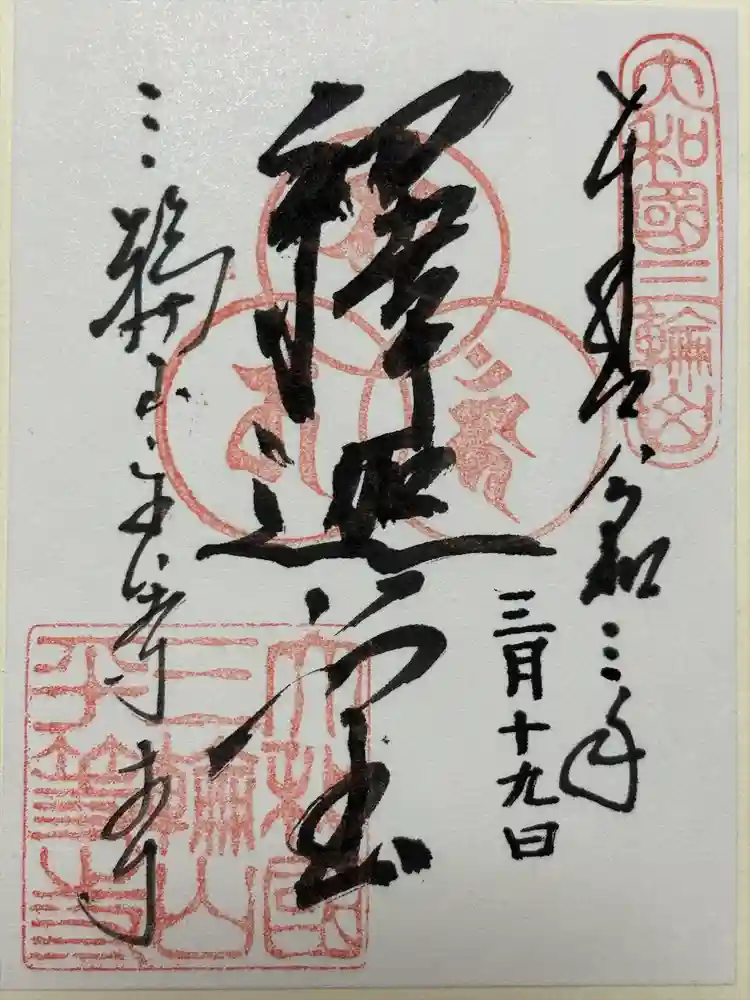 大和國三輪山
奉拝 令和三年
三月十九日
釋迦堂
三輪山平等寺
大和國
三輪山
平等寺